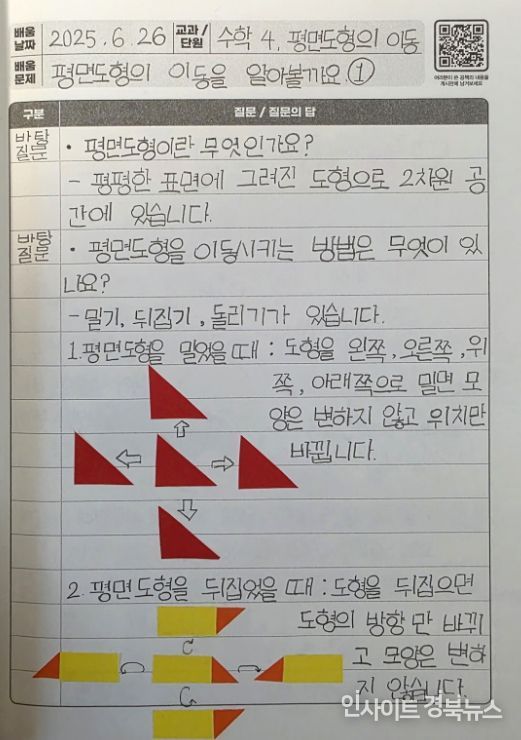 배움 날짜 2025.6.26 교과/단원 수학 4. 평면도형의 이동
배움 문제 평면도형의 이동을 알아볼까요 ①
여러분이 쓴 공책의 내용을
게시판에 남겨보세요
구분 질문 / 질문의 답
바탕질문 • 평면도형이란 무엇인가요?
- 평평한 표면에 그려진 도형으로 2차원 공
간에 있습니다.
바탕질문 • 평면도형을 이동시키는 방법은 무엇이 있
나요?
- 밀기, 뒤집기, 돌리기가 있습니다.
1. 평면도형을 밀었을 때 : 도형을 왼쪽, 오른쪽, 위
쪽, 아래쪽으로 밀면 모
양은 변하지 않고 위치만
바뀝니다.
2. 평면도형을 뒤집었을 때 : 도형을 뒤집으면
도형의 방향만 바뀌
고 모양은 변하
지 않습니다.
인사이트 경북뉴스